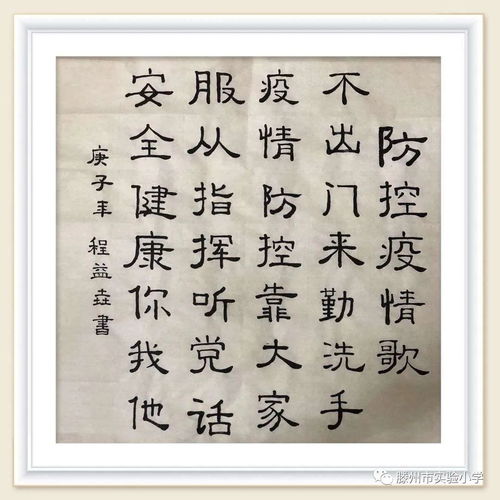 防控疫情歌
不出门来勤洗手
疫情防控靠大家
服从指挥听党话
安全健康你我他
庚子年 程益垚書
滕州市实验小学